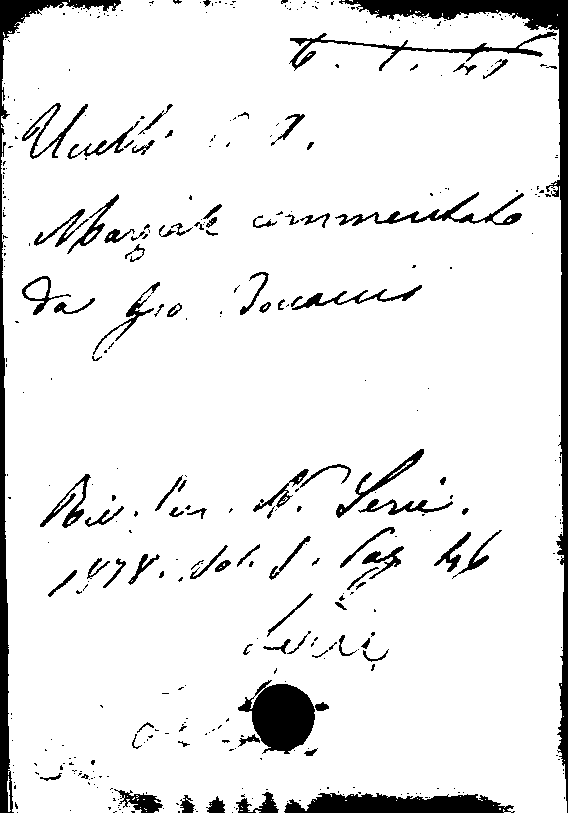 6. 1. 46
Uccelli P. A.
Marziale commentato
da Gio Boccacci
Riv. Eur. N. Serie.
1878. Vol. 5. Pag 46